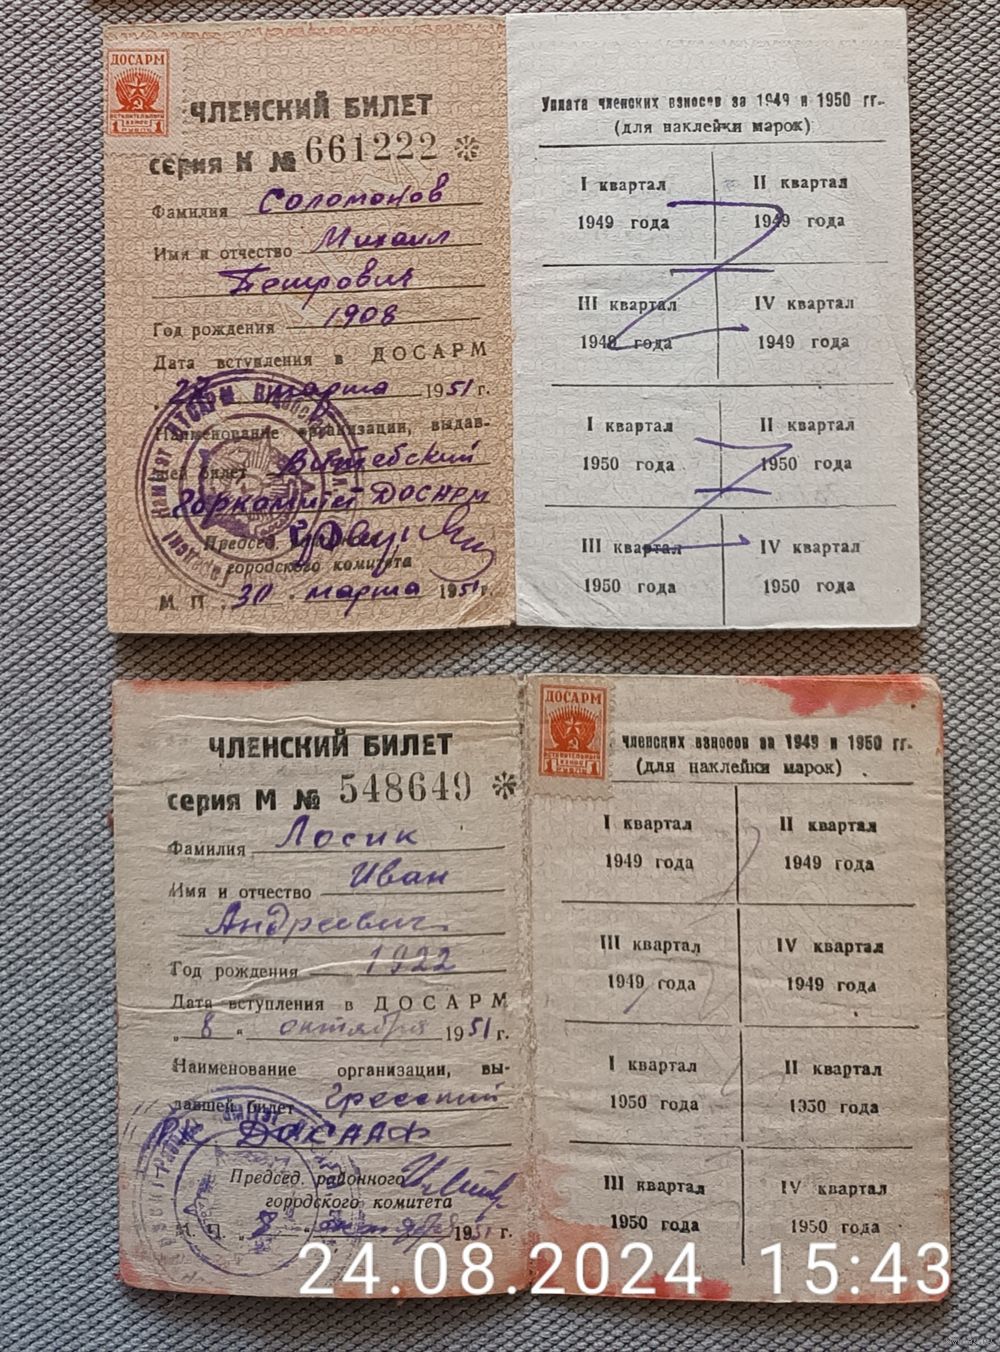 ДОСАРМ
ВСТУПИТЕЛЬНЫЙ
ВЗНОС
1 РУБЛЬ 1
ЧЛЕНСКИЙ БИЛЕТ
серия К № 661222 *
Фамилия Соломонов
Имя и отчество Михаил
Петрович
Год рождения 1908
Дата вступления в ДОСАРМ
марта 1951 г.
Наименование организации, выдав-
шей билет Витебский
Горкомитет ДОСАРМ
Председ. районного
городского комитета
М. П. „30 " марта 1951 г.
Уплата членских взносов за 1949 и 1950 гг.
(для наклейки марок)
I квартал II квартал
1949 года 1949 года
III квартал IV квартал
1949 года 1949 года
I квартал II квартал
1950 года 1950 года
III квартал IV квартал
1950 года 1950 года
ЧЛЕНСКИЙ БИЛЕТ
серия М № 548649 *
Фамилия Лосик
Имя и отчество Иван
Андреевич
Год рождения 1922
Дата вступления в ДОСАРМ
„ 8 " октября 1951 г.
Наименование организации, вы-
давшей билет Гресский
РК ДОСААФ
Председ. районного
городского комитета
М. П. „ 8 " октября 1951 г.
ДОСАРМ
ВСТУПИТЕЛЬНЫЙ
ВЗНОС
1 РУБЛЬ 1
членских взносов за 1949 и 1950 гг.
(для наклейки марок)
I квартал II квартал
1949 года 1949 года
III квартал IV квартал
1949 года 1949 года
I квартал II квартал
1950 года 1950 года
III квартал IV квартал
1950 года 1950 года
24.08.2024 15:43